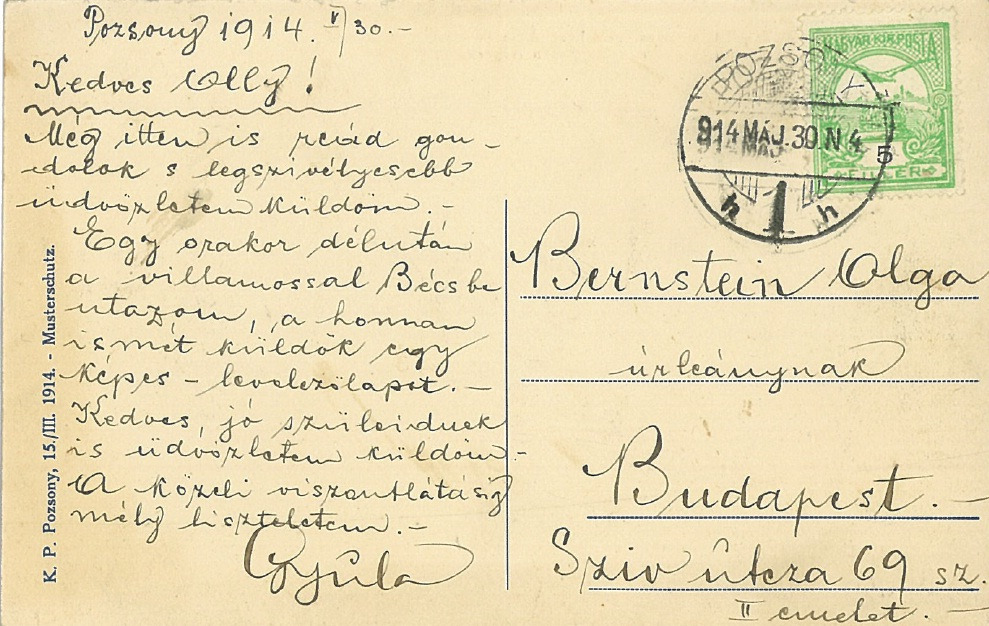 Pozsony 1914. V/30.-
Kedves Olly!
Még itten is reád gon-
dolok s legszivélyesebb
üdvözletem küldöm.-
Egy orakor délután
a villamossal Bécsbe
utazom, a honnan
ismét küldök egy
képes-levelezőlapot.-
Kedves, jó szüleidnek
is üdvözletem küldöm.-
A közeli viszontlátásig
mély tiszteletem.-
Gyula
K. P. Pozsony, 15./III. 1914. - Musterschutz.
MAGYAR KIR. POSTA
5
FILLER
POZSONY
914 MÁJ. 30. N 4
1
h h
Bernstein Olga
úrleánynak
Budapest.-
Sziv útcza 69 sz.
II emelet.-